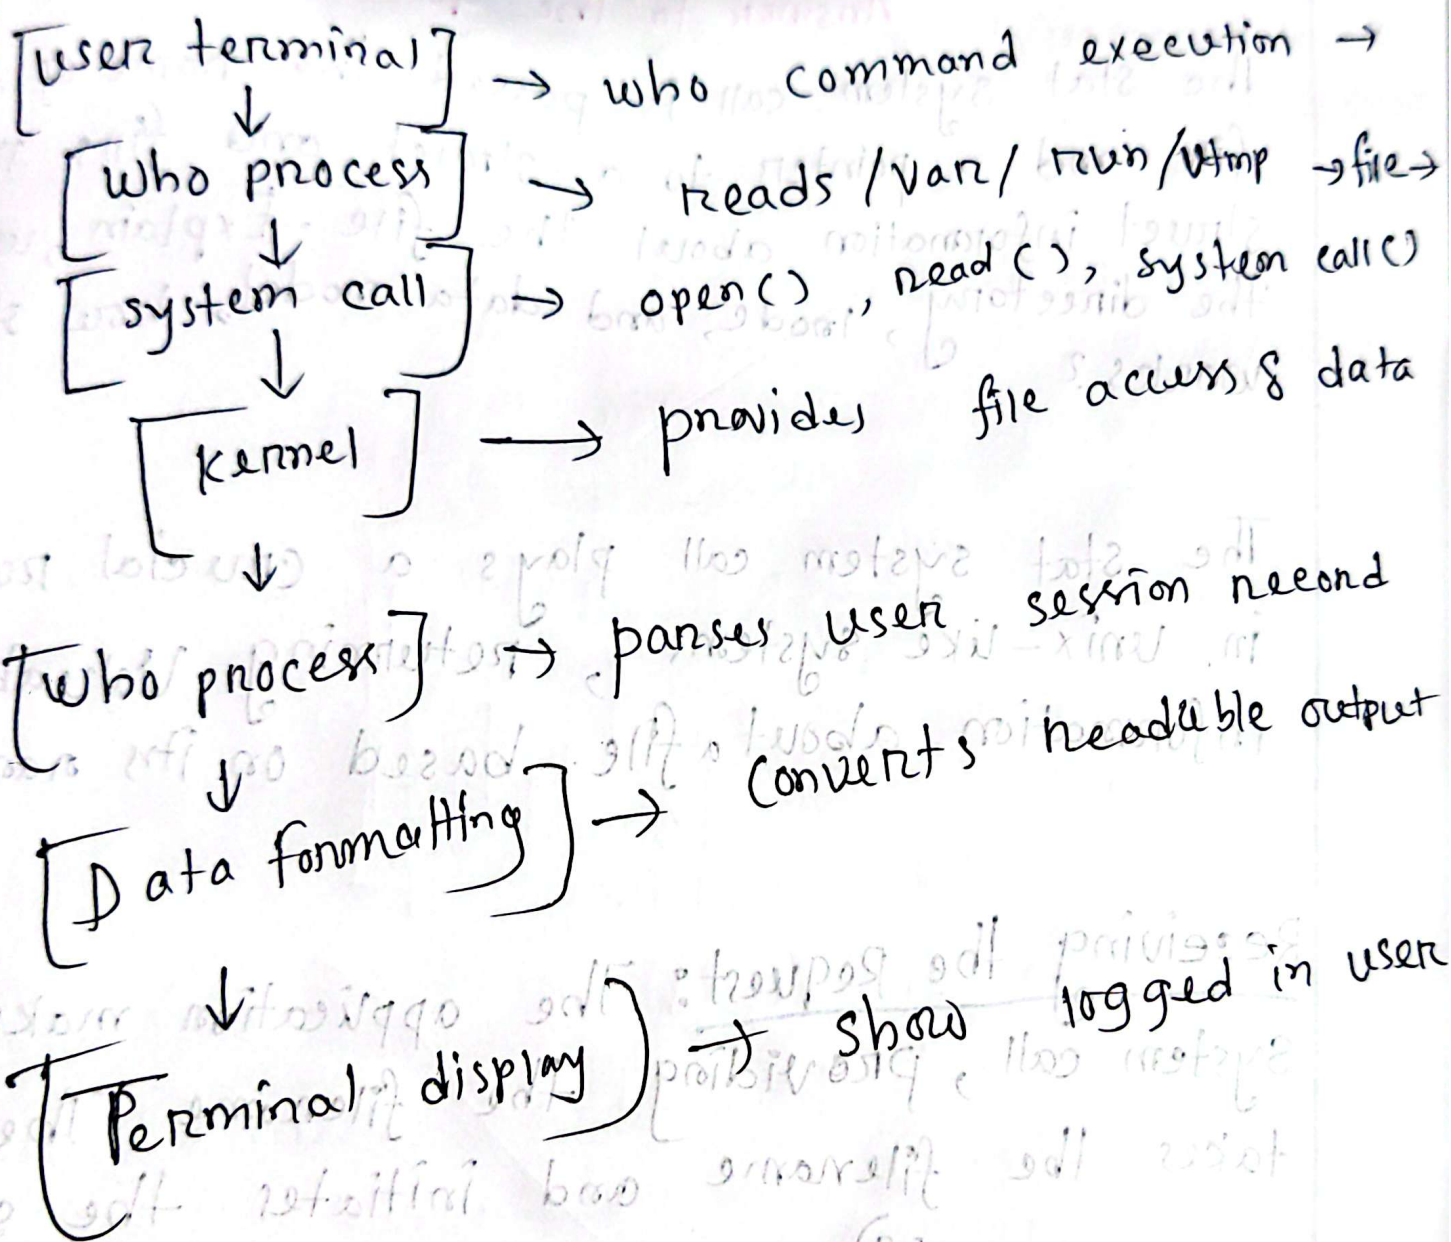 [user terminal] → who command execution →
↓
[who process] → reads /var/run/utmp → file →
↓
[system call] → open(), read(), system call()
↓
[kernel] → provides file access & data
↓
[who process] → parses user session record
↓
[Data formatting] → converts readable output
↓
[Terminal display] → show logged in user